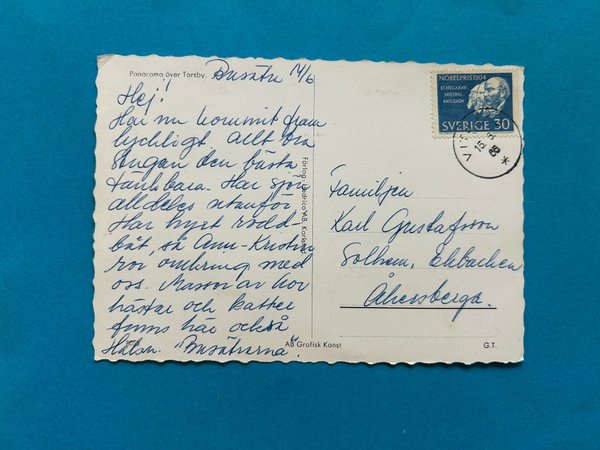 Panorama över Torsby.
Busätra 14/6
Hej!
Har nu kommit fram
lyckligt allt bra
Stugan den bästa
tänkbara. Har sjön
alldeles utanför
Har hyrt rodd-
båt, så Ann-Kristin
ror omkring med
oss. Massor av kor
hästar och katter
finns här också
Hälsn. "Busätrarna".
AB Grafisk Konst
G.T.
NOBELPRIS 1904
ECHEGARAY
MISTRAL
RAYLEIGH
SVERIGE 30
Familjen
Karl Gustafsson
Solhem, Ekbacken
Åkersberga.